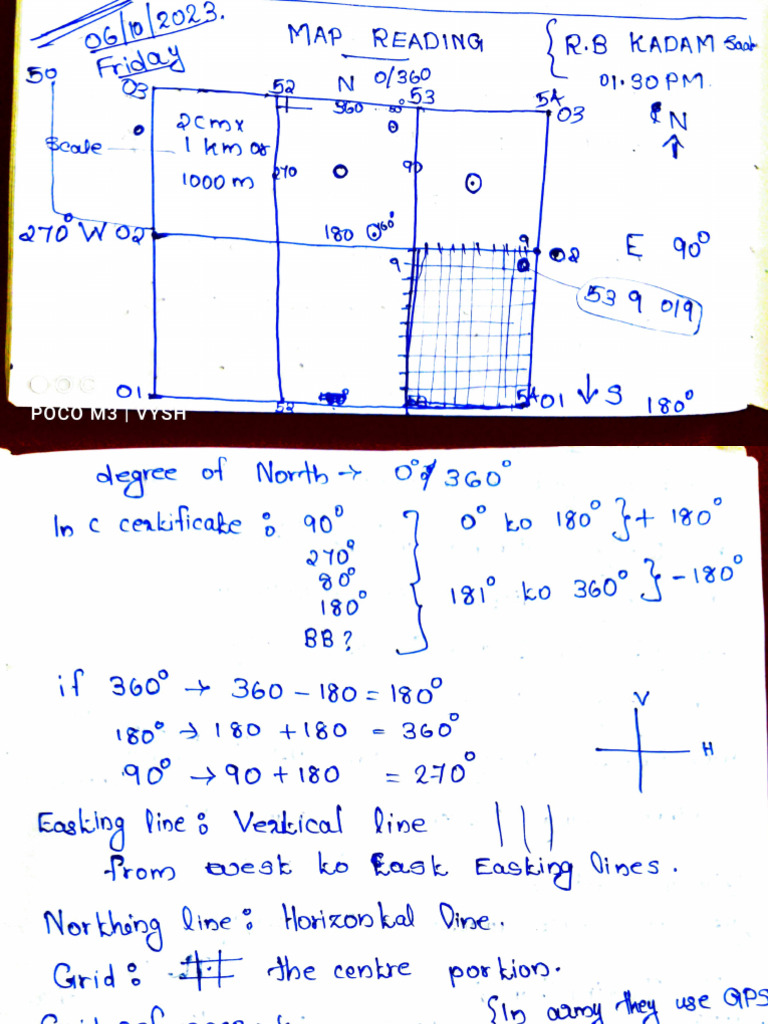 06/10/2023.
Friday
MAP READING
{ R.B KADAM Saab
01.30 PM.
50
03
52
N 0/360
53
54
03
N
360
2cm x
Scale
1 km or
1000 m
270
90
270° W 02
180
360°
9
02
E 90°
9
53 9 019
01
52
53
54 01
S 180°
POCO M3 | VYSH
degree of North → 0°/360°
In C certificate : 90°
270°
80°
180°
BB ?
0° to 180° } + 180°
181° to 360° } - 180°
if 360° → 360 - 180 = 180°
180° → 180 + 180 = 360°
90° → 90 + 180 = 270°
V
H
Easting line : Vertical line
from west to East Easting lines.
Northing line : Horizontal line.
Grid : the centre portion.
{In army they use GPS